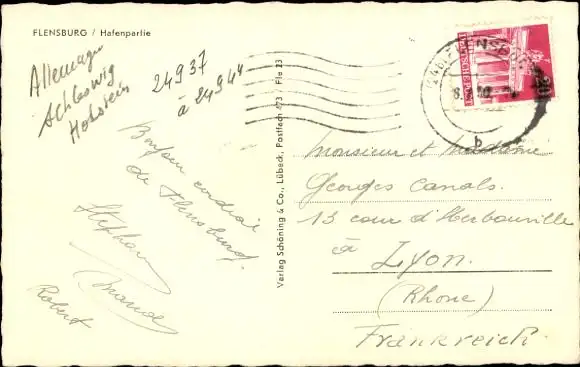 FLENSBURG / Hafenpartie
Allemagne
Schleswig
Holstein
24937
à 24944
Bonjour cordial
de Flensburg.
Stephan
Robert
Verlag Schöning & Co., Lübeck, Postfach 473 / Fle 23
DEUTSCHE POST
20
FLENSBURG
b
Monsieur et Madame
Georges Canals.
13 cour d'Herbouville
à
Lyon.
(Rhone)
Frankreich.